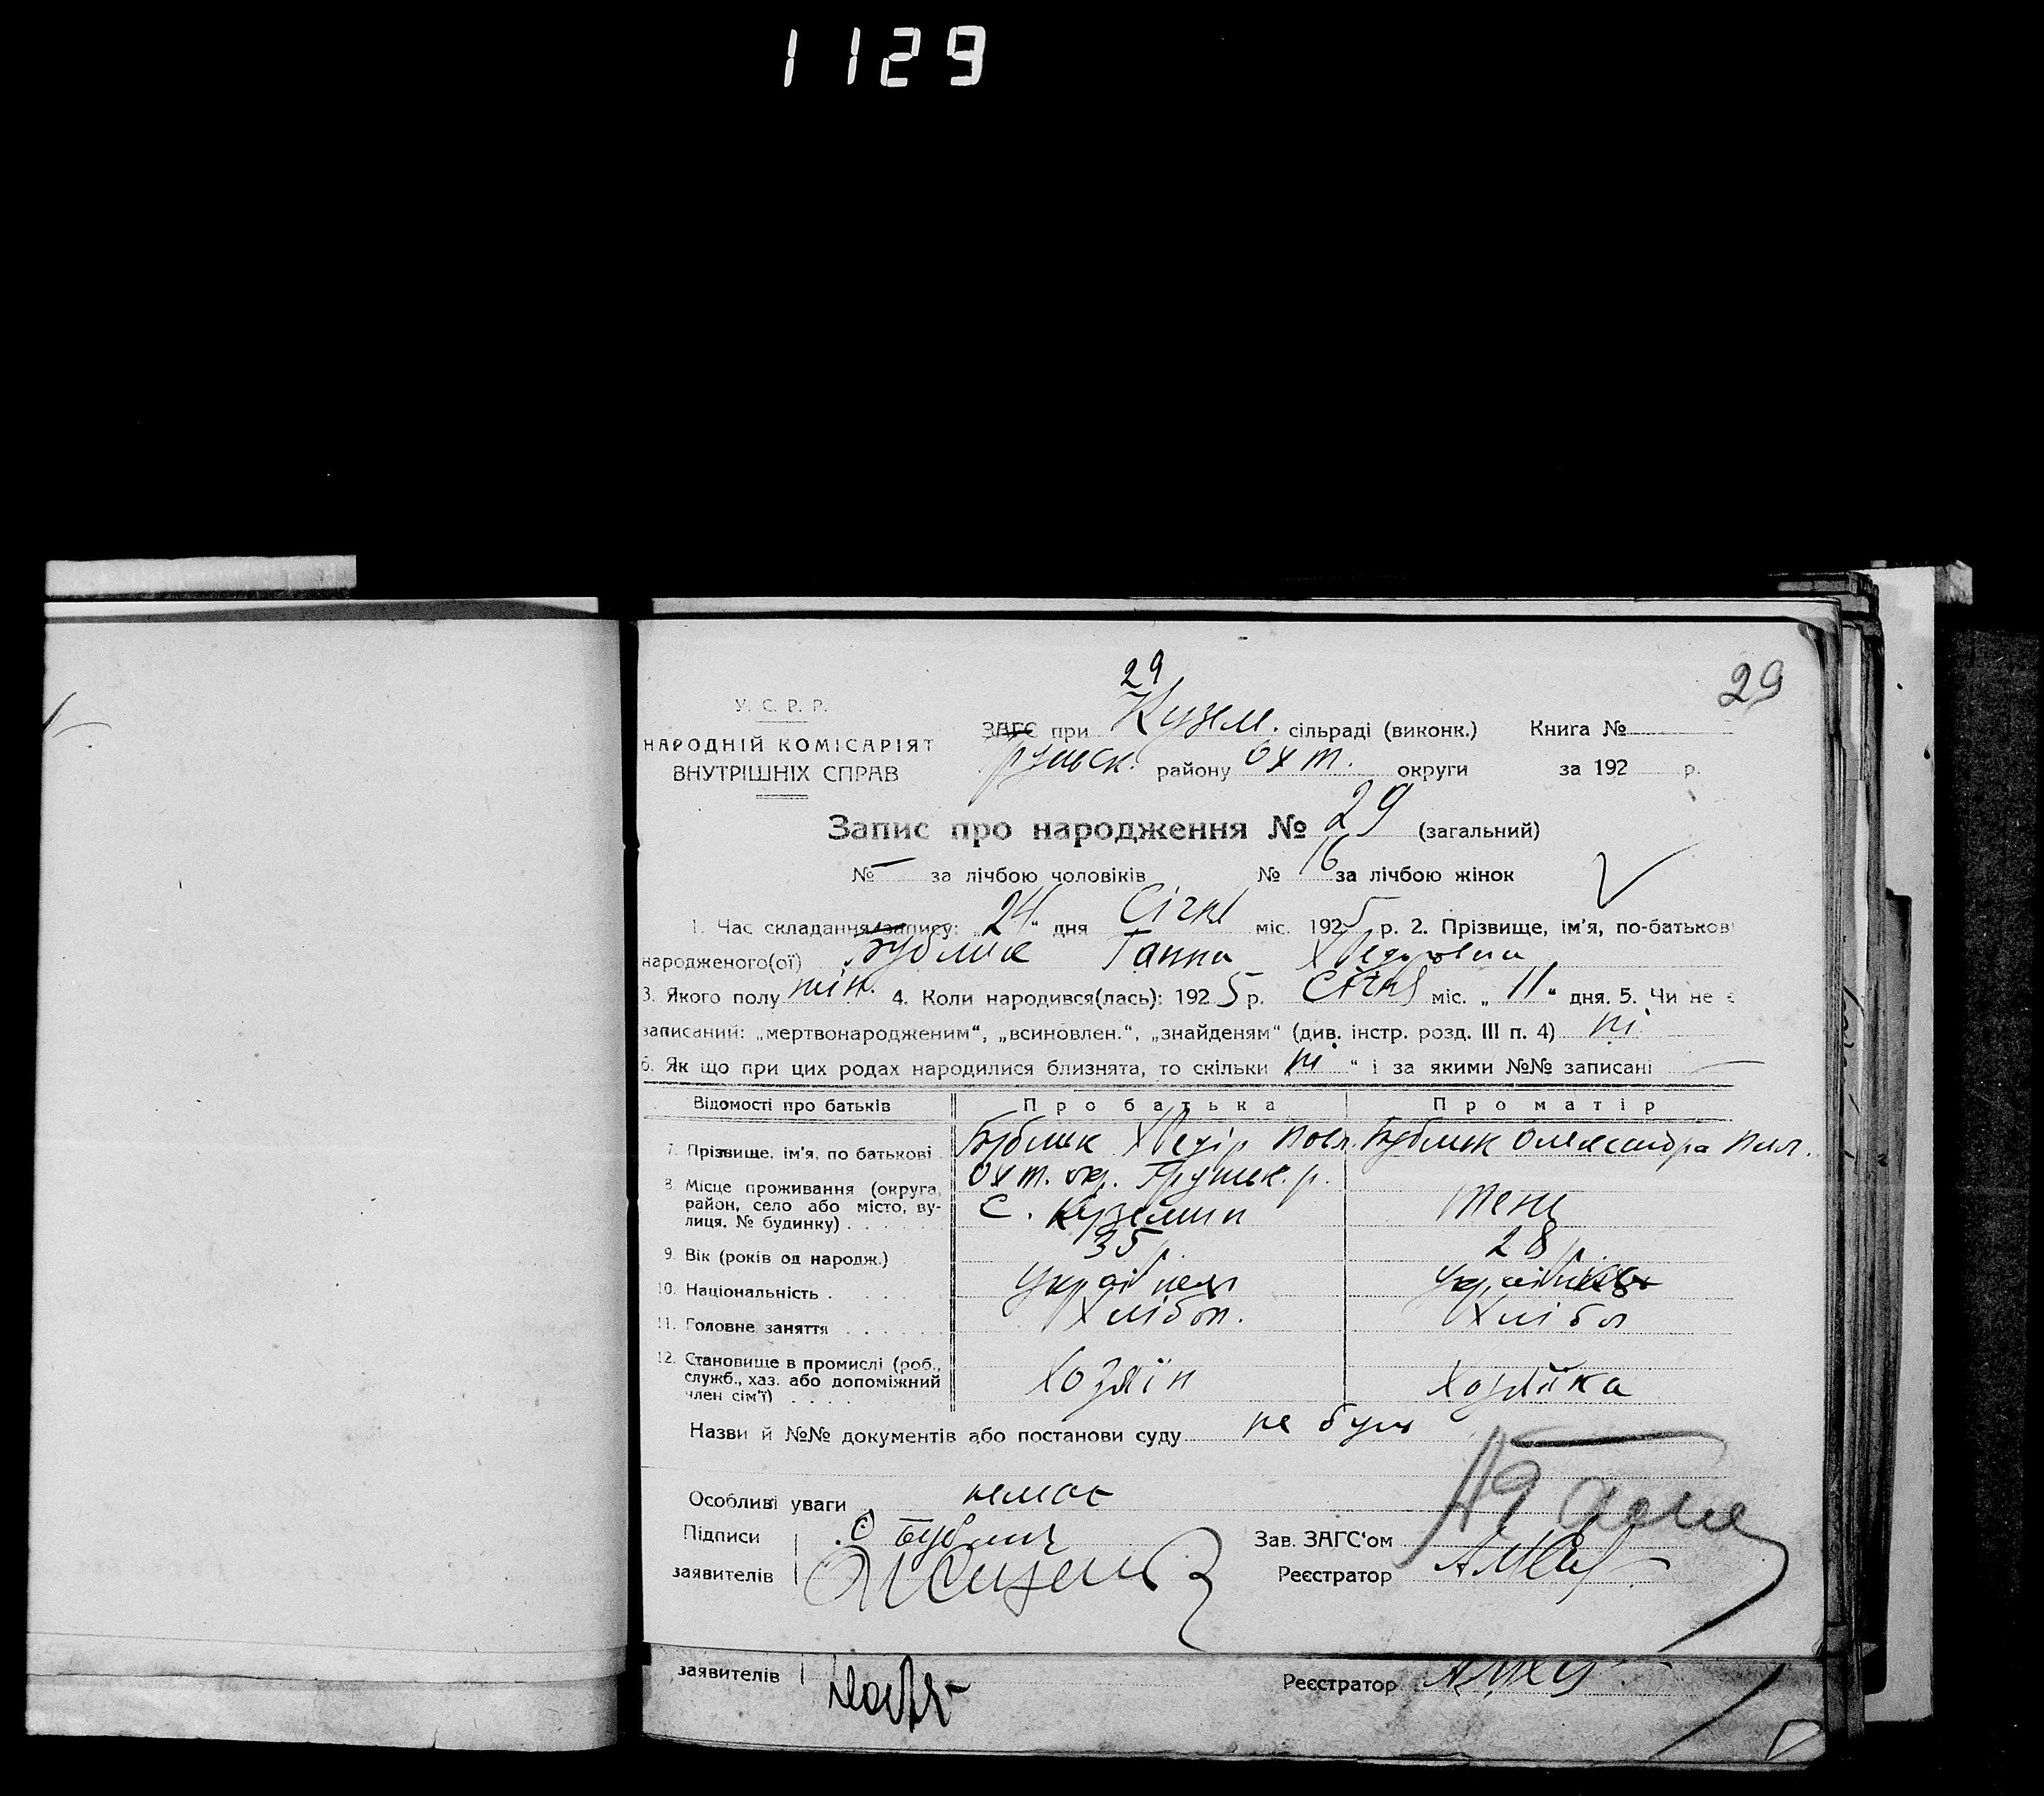 1129
29
29
У. С. Р. Р.
НАРОДНІЙ КОМІСАРІЯТ
ВНУТРІШНІХ СПРАВ
ЗАГС при Кузем. сільраді (виконк.) Книга №
району Охт. округи за 192 р.
Запис про народження № 29 (загальний)
№ — за лічбою чоловіків № 16 за лічбою жінок
1. Час складання запису: „24“ дня Січня міс. 1925 р. 2. Прізвище, ім'я, по-батьков
народженого(ої) Бублик Ганна Хведоровна
3. Якого полу жін. 4. Коли народився(лась): 1925 р. Січня міс. „11“ дня. 5. Чи не є
записаний: „мертвонародженим“, „всиновлен.“, „знайденям“ (див. інстр. розд. III п. 4) ні
6. Як що при цих родах народилися близнята, то скільки „ні“ і за якими №№ записані —
Відомості про батьків Про батька Про матір
7. Прізвище, ім'я, по батькові Бублик Хведір Бублик Олександра
8. Місце проживання (округа, район, село або місто, вулиця, № будинку) Охт. окр. Грунськ. р.
с. Куземин тепе
9. Вік (років од народж.) 35 р. 28 р.
10. Національність Українец
11. Головне заняття Хлібоп. Хлібо
12. Становище в промислі (роб., служб., хаз. або допоміжний член сім'ї) Хозяїн Хозяйка
Назви й №№ документів або постанови суду не було
Особливі уваги немає
Підписи Бублик Зав. ЗАГС'ом
заявителів Реєстратор
заявителів Реєстратор